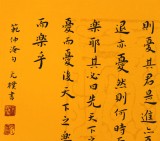 則憂其君是進亦
退亦憂然則何時而
樂耶其必曰先天下之
憂而憂後天下之樂
而樂乎
范仲淹句 元樸書